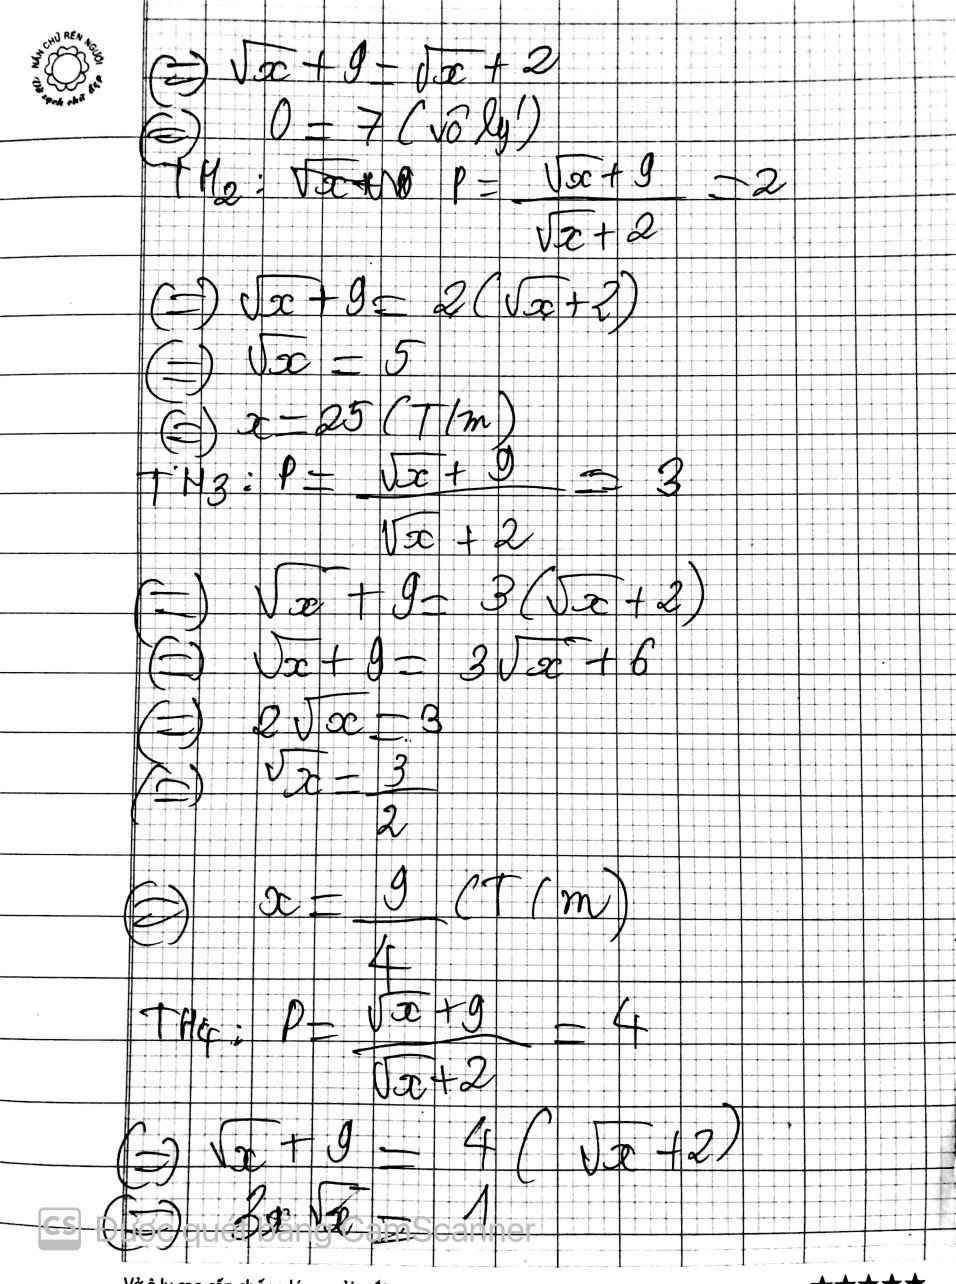 NẮN CHỮ RÈN NGƯỜI
Vở sạch chữ đẹp
⇔ √x + 9 = √x + 2
⇔ 0 = 7 (vô lý)
TH2: P = (√x + 9)/(√x + 2) = 2
⇔ √x + 9 = 2(√x + 2)
⇔ √x = 5
⇔ x = 25 (T/m)
TH3: P = (√x + 9)/(√x + 2) = 3
⇔ √x + 9 = 3(√x + 2)
⇔ √x + 9 = 3√x + 6
⇔ 2√x = 3
⇔ √x = 3/2
⇔ x = 9/4 (T/m)
TH4: P = (√x + 9)/(√x + 2) = 4
⇔ √x + 9 = 4(√x + 2)
⇔ 3√x = 1
CS Được quét bằng CamScanner